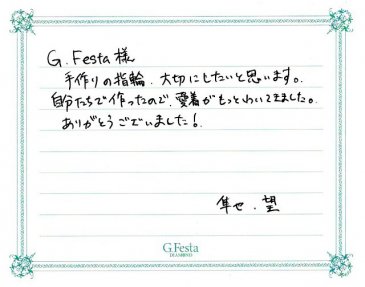 G.Festa様
手作りの指輪、大切にしたいと思います。
自分たちで作ったので、愛着がもっとわいてきました。
ありがとうございました！
隼也、望
G.Festa